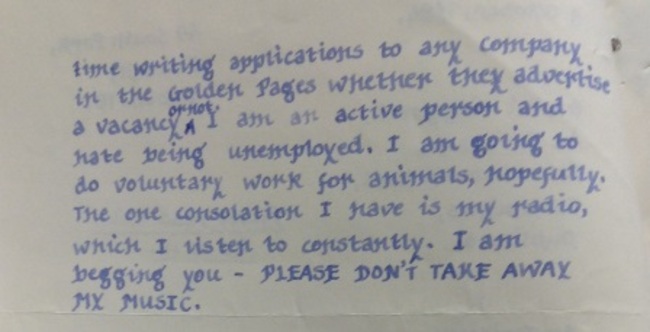 time writing applications to any company
in the Golden Pages whether they advertise
a vacancy or not. I am an active person and
hate being unemployed. I am going to
do voluntary work for animals, hopefully.
The one consolation I have is my radio,
which I listen to constantly. I am
begging you - PLEASE DON'T TAKE AWAY
MY MUSIC.